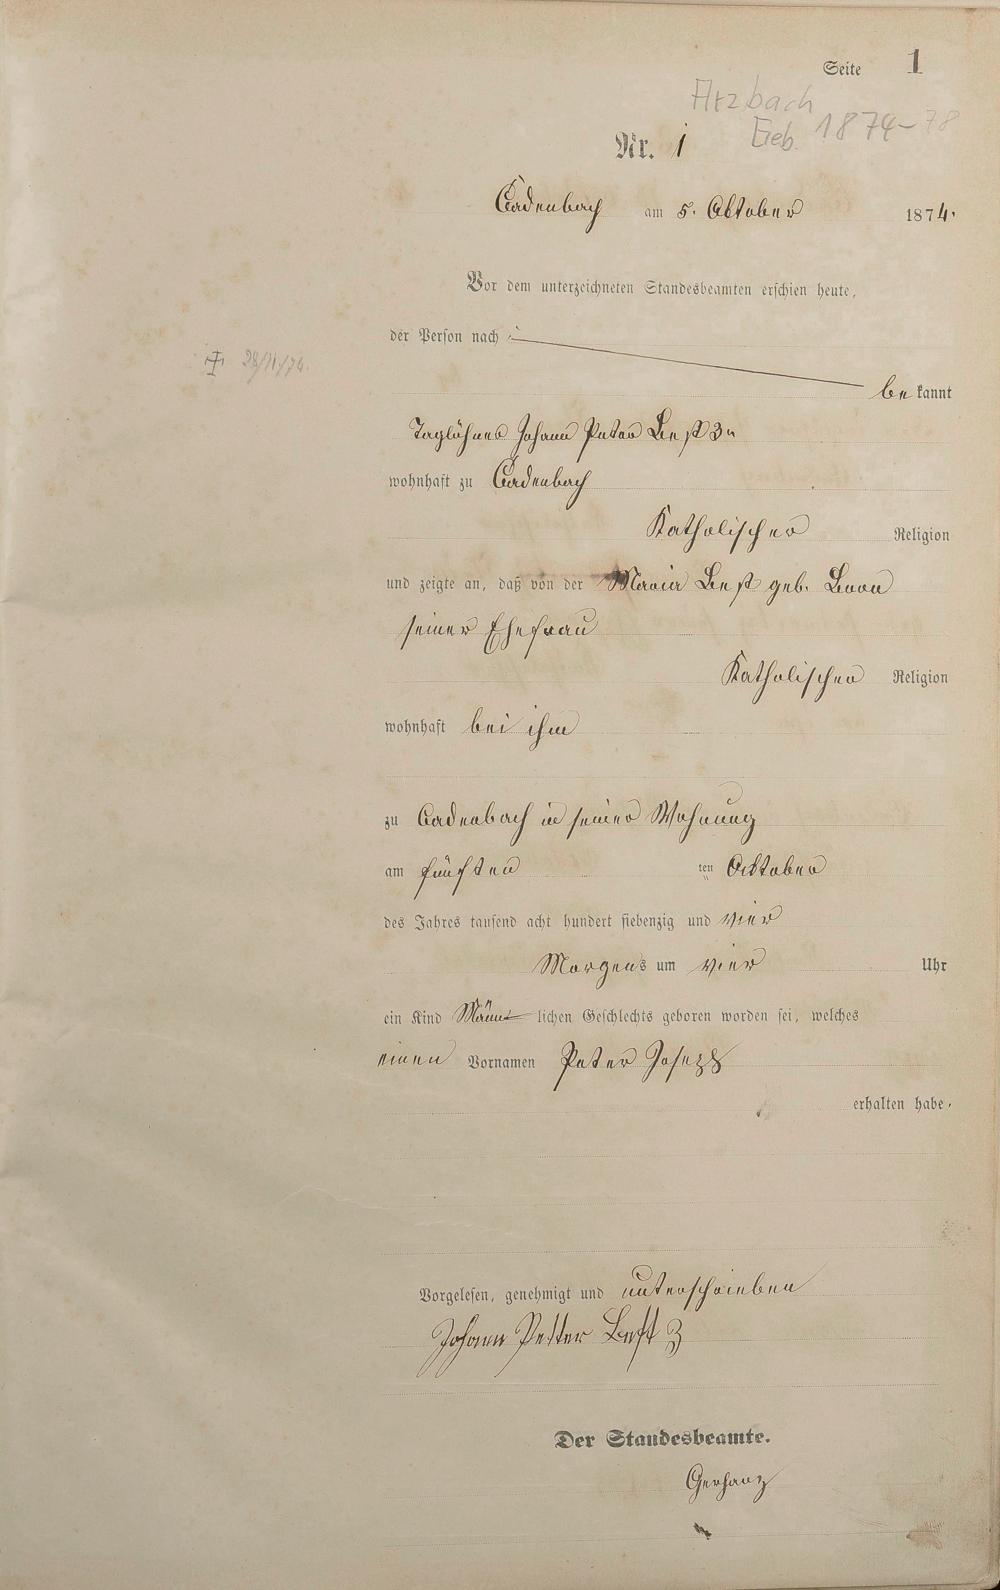 Seite 1
Arzbach
Geb. 1874-78
Nr. 1
Cadenbach am 5. Oktober 1874.
Vor dem unterzeichneten Standesbeamten erschien heute,
der Person nach
bekannt
Taglöhner Johann Peter Best 3r
wohnhaft zu Cadenbach
Katholischer Religion
und zeigte an, daß von der Maria Best geb.
seiner Ehefrau
Katholischer Religion
wohnhaft bei ihm
zu Cadenbach in seiner Wohnung
am fünften ten Oktober
des Jahres tausend acht hundert siebenzig und vier
Morgens um vier Uhr
ein Kind Männlichen Geschlechts geboren worden sei, welches
einen Vornamen Peter Joseph
erhalten habe.
Vorgelesen, genehmigt und unterschrieben
Johann Petter Best 3
Der Standesbeamte.
Gerhanz